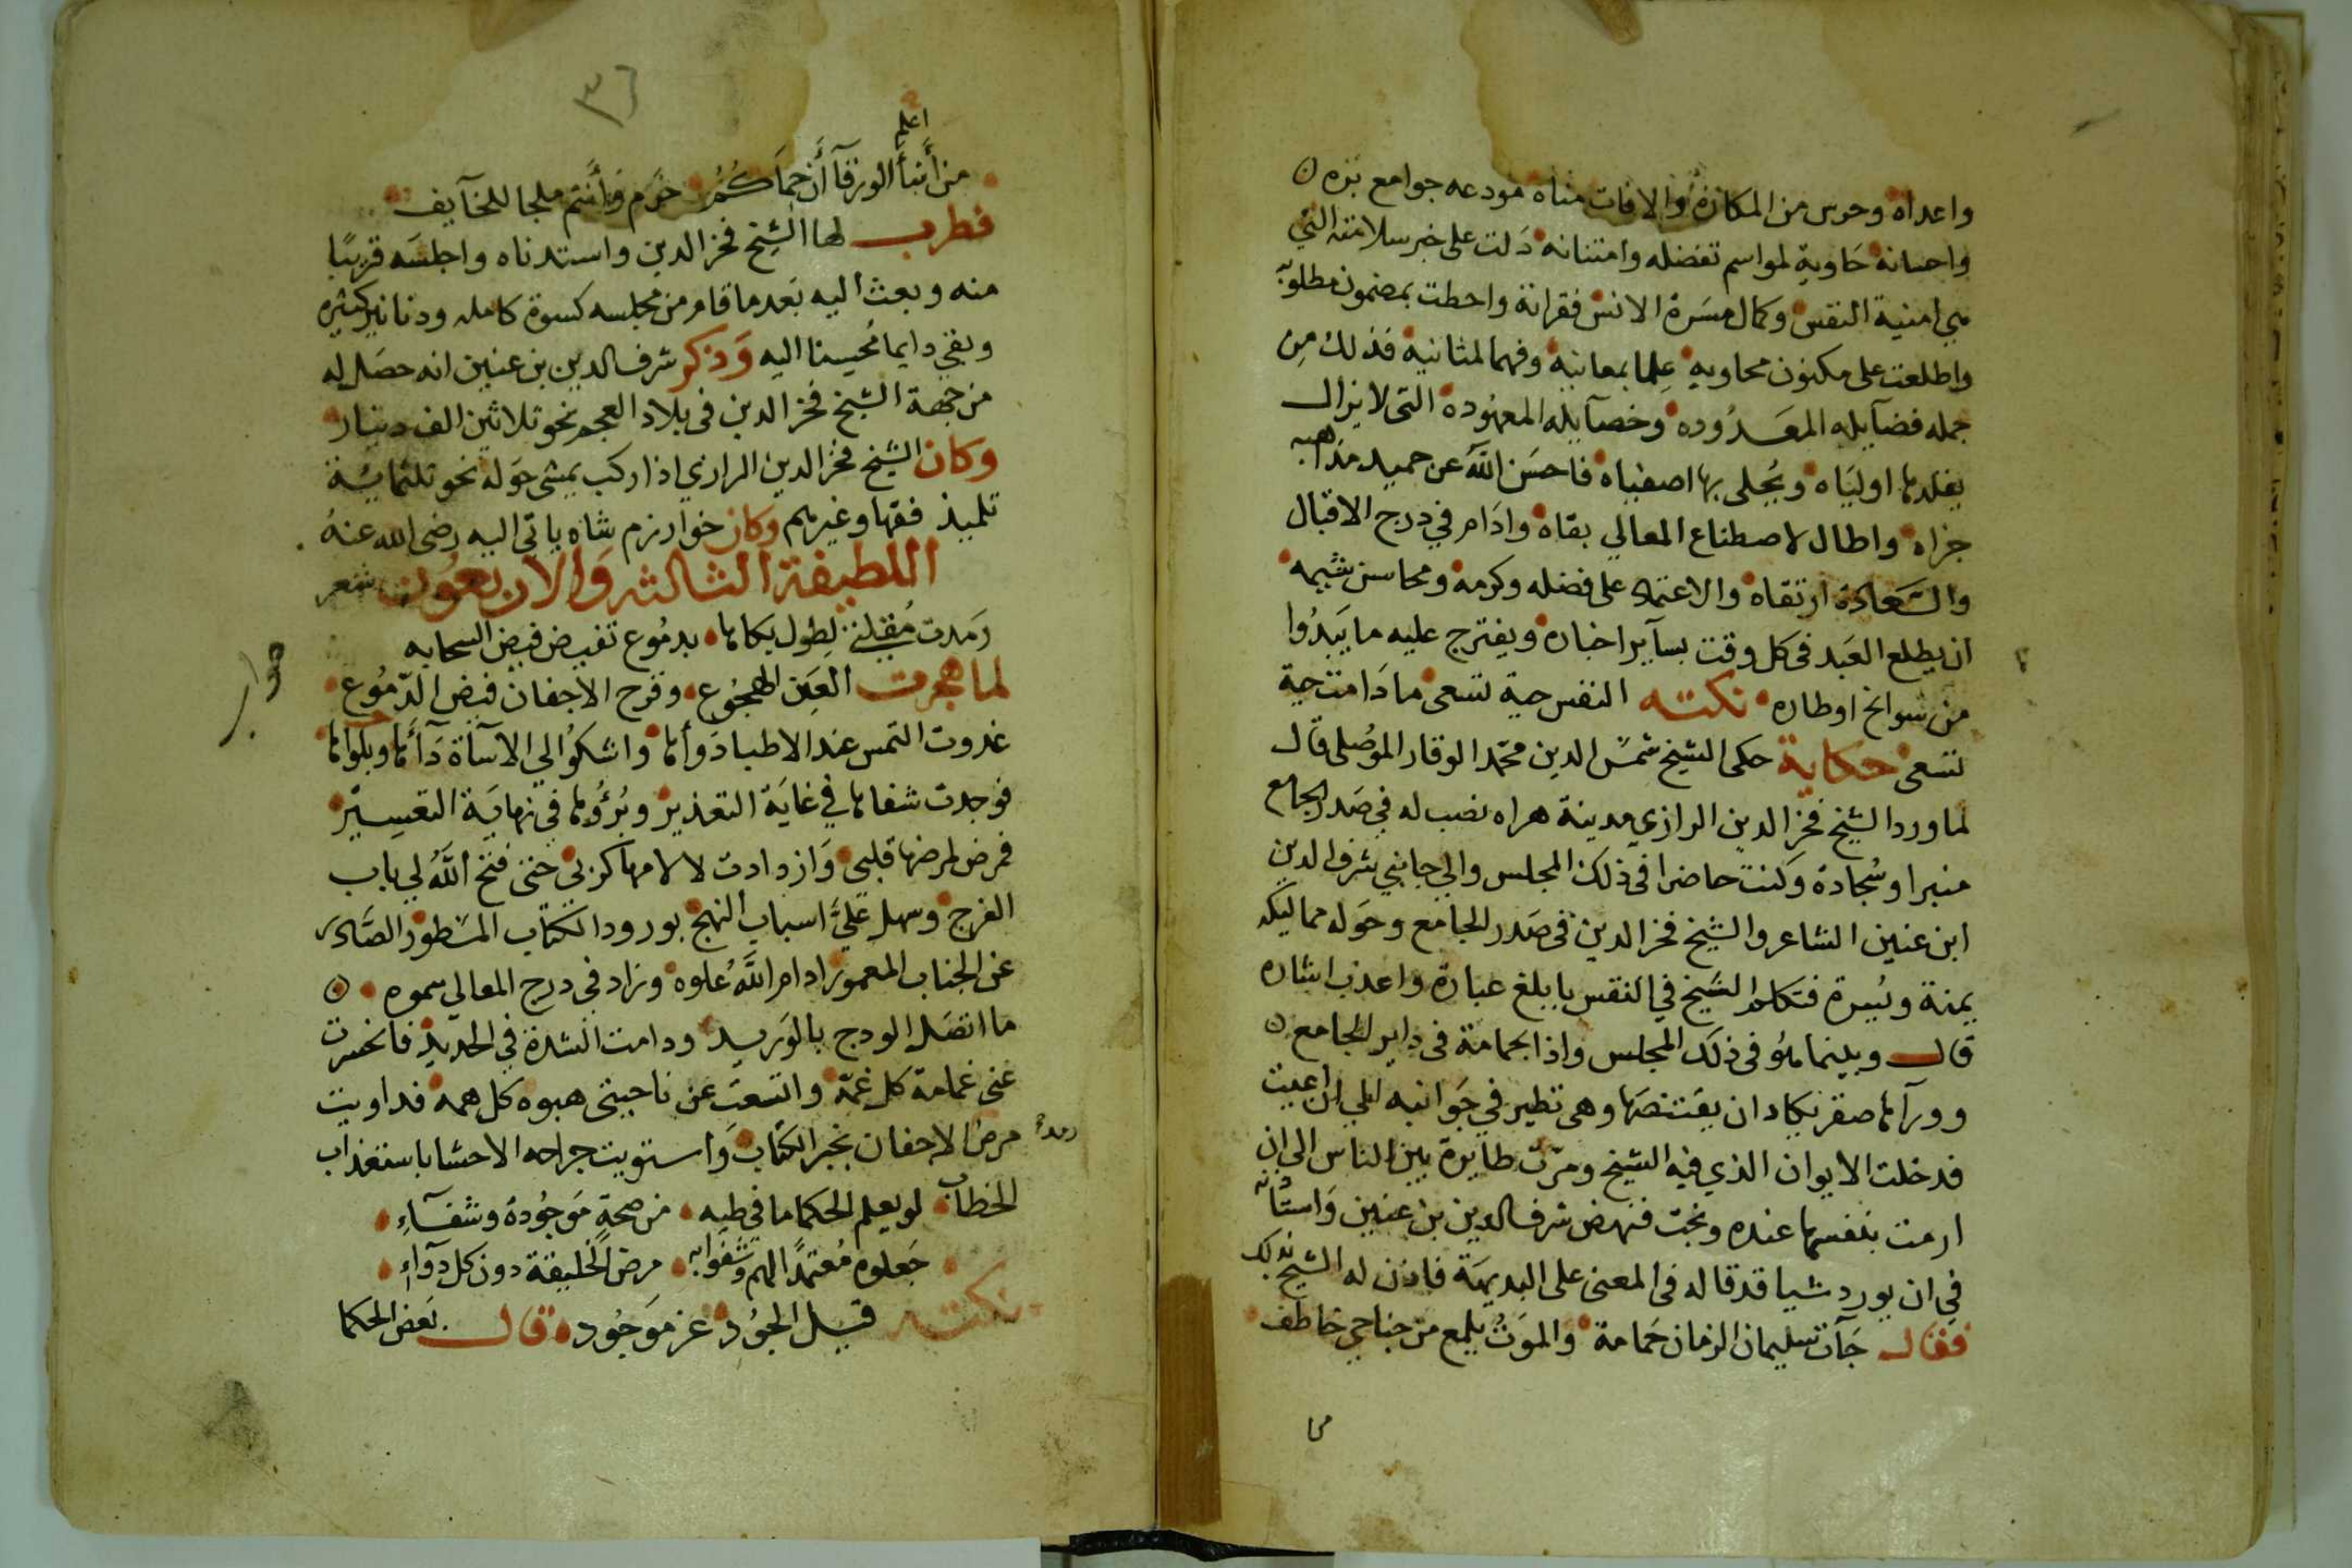 واعداه وحرس من المكاره والافات مناه مودعه جوامع بره
واحسانه حاوية لمواسم تفضله وامتنانه دلت على خبر سلامته التي
هي امنية النفس وكمال مسرة الانس فقرأته واحطت بمضمون مطلوبه
واطلعت على مكنون محاويه علما بمعانيه وفهما لمثانيه فذلك من
جمله فضايله المعدوده وخصايله المعهوده التى لا يزال
يقلدها اولياه ويحلى بها اصفياه فاحسن الله عن حميد مذاهبه
جزاه واطال لاصطناع المعالي بقاه وادام في درج الاقبال
والسعادة ارتقاه والاعتماد على فضله وكرمه ومحاسن شيمه
ان يطلع العبد فى كل وقت بساير اخباره ويقترح عليه ما يبدوا
من سوانح اوطاره نكته النفس حية تسعى ما دامت حية
تسعى حكاية حكى الشيخ شمس الدين محمد الوقار الموصلى قال
لما ورد الشيخ فخر الدين الرازي مدينة هراه نصب له في صدر الجامع
منبرا وسجادة وكنت حاضرا فى ذلك المجلس والي جانبي شرف الدين
ابن عنين الشاعر والشيخ فخر الدين فى صدر الجامع وحوله مماليكه
يمنة ويسرة فتكلم الشيخ في النفس بابلغ عبارة واعذب اشاره
قال وبينما هو فى ذلك المجلس واذا بحمامة فى داير الجامع
وورآها صقر يكاد ان يقتنصها وهى تطير في جوانبه الي ان اعيت
فدخلت الايوان الذي فيه الشيخ ومرت طايرة بين الناس الى ان
ارمت بنفسها عنده ونجت فنهض شرف الدين بن عنين واستأذنه
في ان يورد شيا قد قاله فى المعنى على البديهة فاذن له الشيخ بذلك
فقال جآت سليمان الزمان حمامة والموت يلمع من جناحي خاطف
٣٦
اعلم
من أنبأ الورقآ أن حماكم حرم وأنتم ملجا للخآيف
فطرب لها الشيخ فخر الدين واستدناه واجلسه قريبا
منه وبعث اليه بعد ما قام من مجلسه كسوة كامله ودنانير كثيره
وبقي دايما محسنا اليه وذكر شرف الدين بن عنين انه حصل له
من جهة الشيخ فخر الدين فى بلاد العجم نحو ثلاثين الف دينار
وكان الشيخ فخر الدين الرازي اذا ركب يمشى حوله نحو ثلثمائة
تلميذ فقها وغيرهم وكان خوارزم شاه ياتى اليه رضى الله عنه
اللطيفة الثالثه والاربعون شعر
رمدت مقلتي لطول بكاها بدموع تفيض فيض السحابه
لما هجرت العين الهجوع وقرح الاجفان فيض الدموع
غدوت التمس عند الاطبا دوأها واشكوا الى الاساة دآها وبلواها
فوجدت شفاها في غاية التعذير وبرؤها في نهاية التعسير
فمرض لمرضها قلبى وازدادت لالامها كربي حتى فتح الله لي باب
الفرج وسهل علي اسباب النهج بورود الكتاب المسطور الصادر
عن الجناب المعمور ادام الله علوه وزاد في درج المعالي سموه
ما اتصل الودج بالوريد ودامت الشدة في الحديد فانحسرت
عنى غمامة كل غمة واتسعت عن ناحيتى هبوه كل همه فداويت
مرض الاجفان بخبر الكتاب واستويت جراحه الاحشا باستعذاب
الخطاب لو يعلم الحكما ما في طيه من صحة موجودة وشفآء
جعلوه معتمدا لهم وشفوا به مرض الخليقة دون كل دوآء
نكته قيل الجود عز موجوده قال بعض الحكما